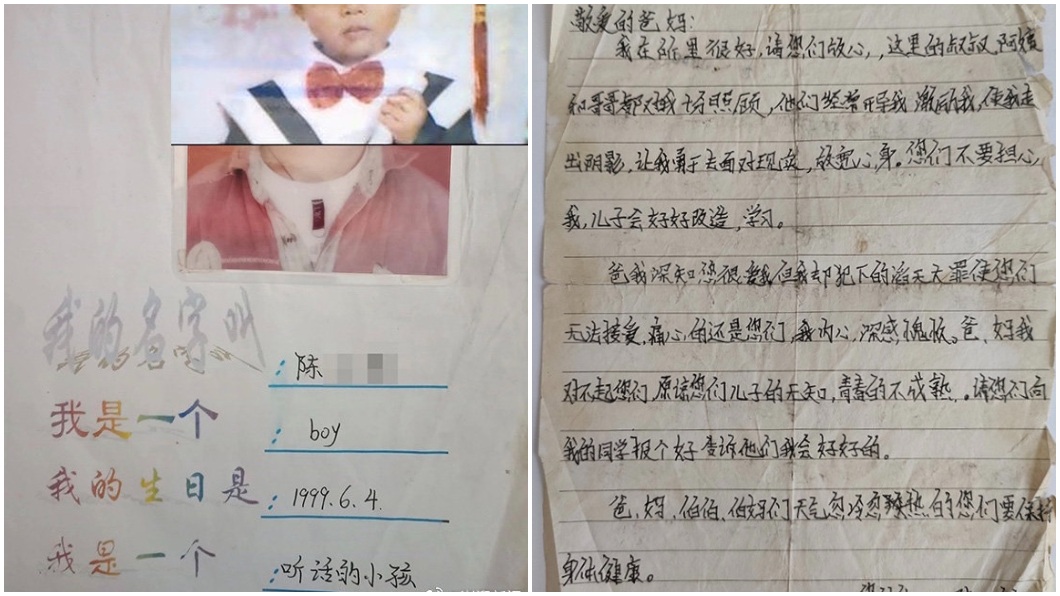 我的名字叫:陈
我是一个:boy
我的生日是:1999.6.4.
我是一个:听话的小孩
敬爱的爸妈:
我在所里很好,请您们放心,,这里的叔叔,阿姨
和哥哥都对我十分照顾,他们经常开导我 激励我,使我走
出阴影,让我勇于去面对现实,放宽心,身。您们不要担心,
我,儿子会好好改造,学习。
爸我深知您很爱我但我却犯下的滔天大罪使您们
无法接受,痛心的还是您们,我内心,深感愧疚。爸、妈我
对不起您们,原谅您们儿子的无知,青春的不成熟,。请您们向
我的同学报个好 告诉他们我会好好的。
爸,妈、伯伯、伯妈们天气忽冷忽热的您们要保持
身体健康。